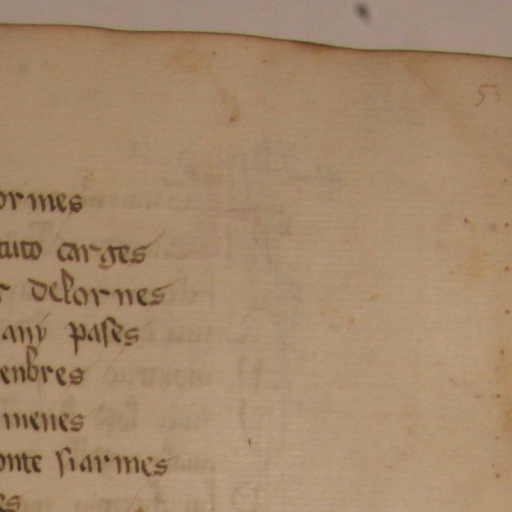 ormes
tuto carges
r delornes
any pases
enbres
menes
onte siarmes
es